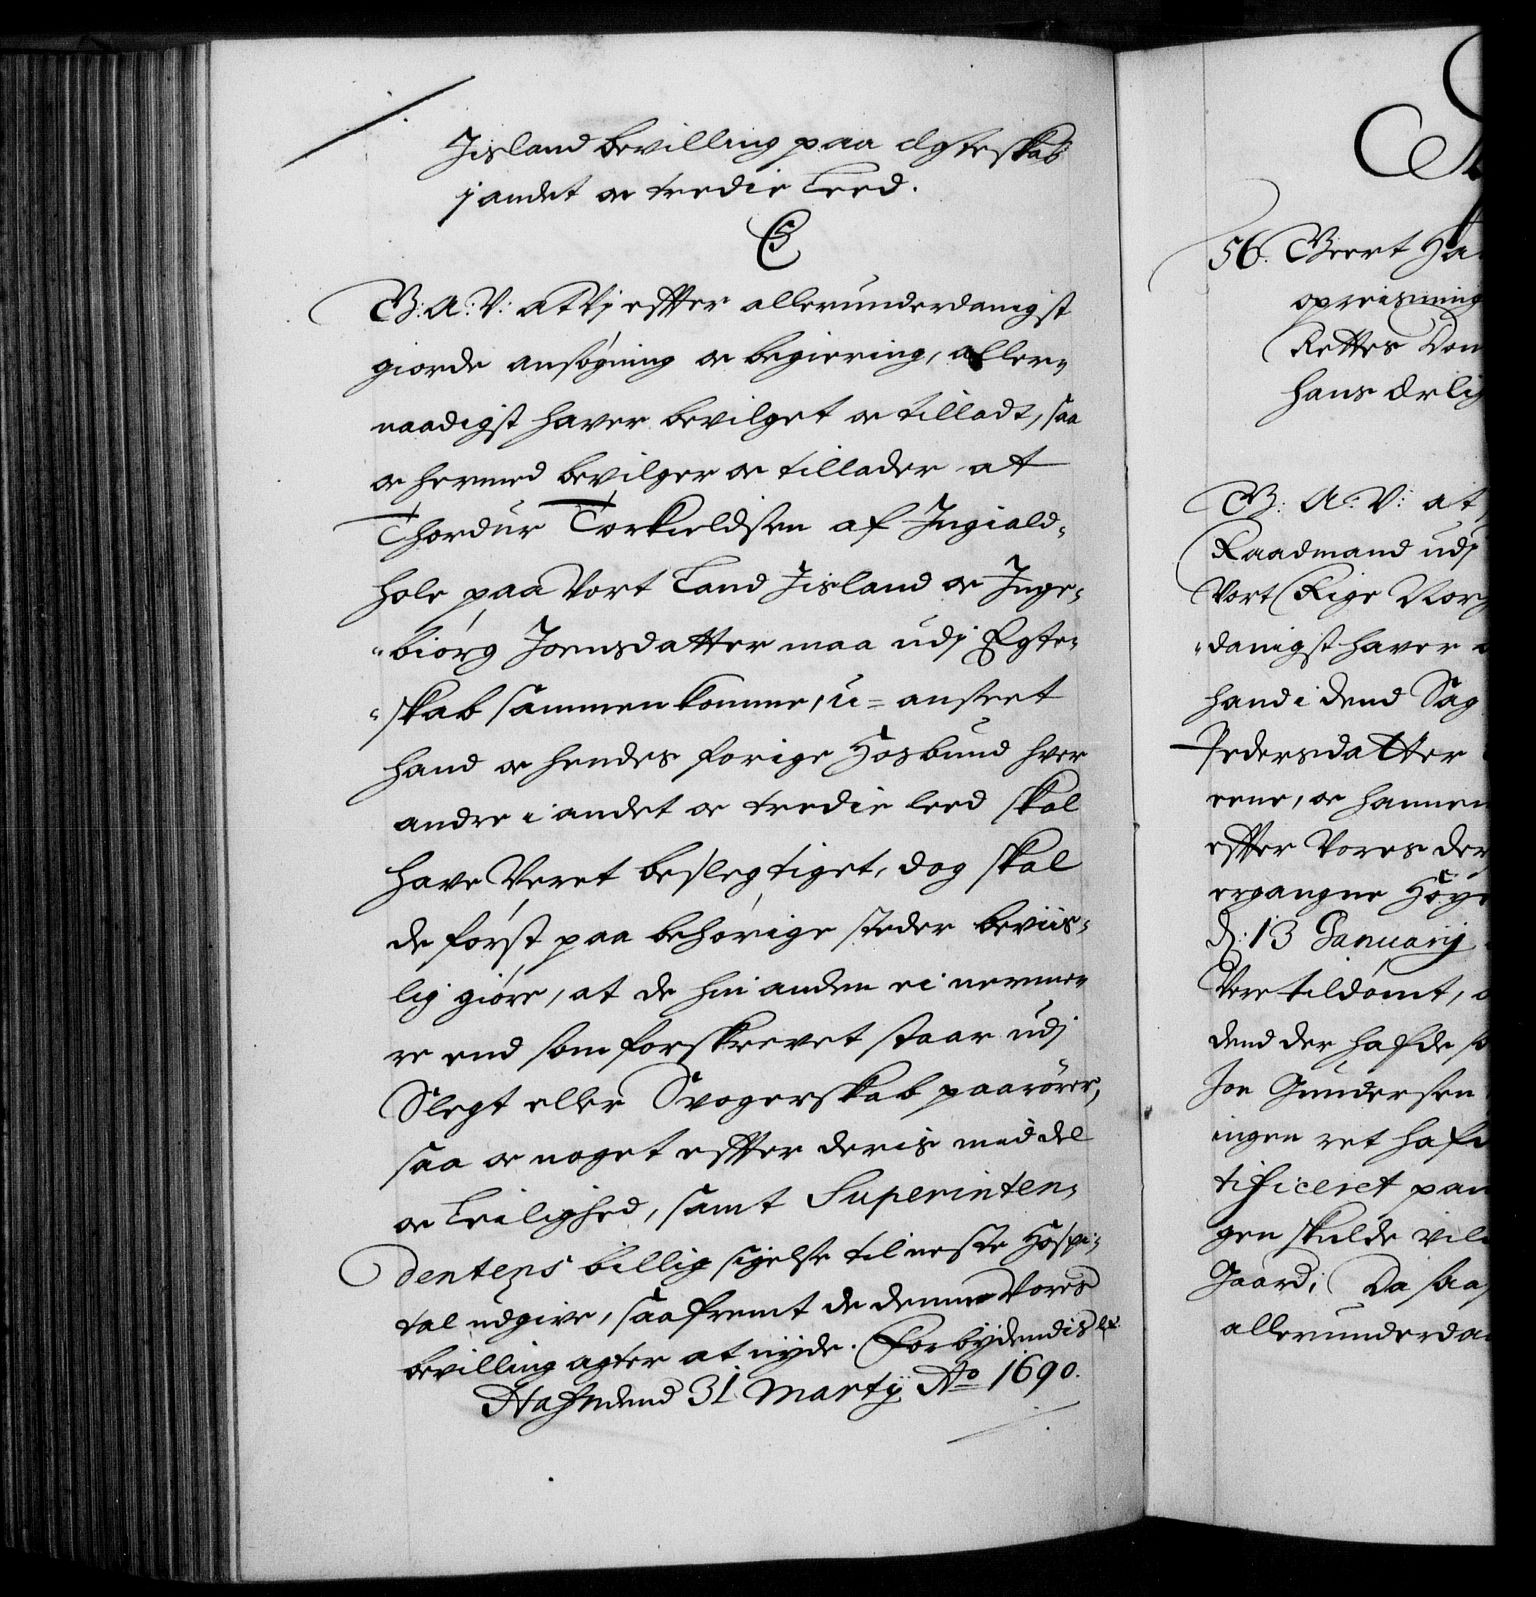 Jisland bevilling paa Egteskab
j andet oc tredie Leed.
C5
G: A: V: at Vj effter allerunderdanigst
giorde ansøgning oc begiering, aller-
naadigst haver bevilget oc tilladt, saa
oc hermed bevilger oc tillader at
Thordur Torkieldsen af Ingiald-
hole paa Vort Land Jisland oc Inge-
biørg Joensdatter maa udj Egte-
skab sammen komme, u-anseet
hand oc hendes forige Hosbund hver
andre i andet oc tredie leed skal
have Veret beslegtiget, dog skal
de først paa behørige steder beviis-
lig giøre, at de hin anden ei nerme-
re end som forskrevet staar udj
Slegt eller Svogerskab paarører,
saa oc noget effter deris middel
oc Leilighed, samt Superinten-
dentens billig sigelse til neste Hospi-
tal udgive, saafremt de denne Vores
bevilling agter at nyde. Forbydendis etc
Hafn dend 31 Martij Ao 1690.
56. Geert Ha
opreisning
Rettes Dom
hans ærlig
G: A: V: at
Raadmand udj
Vort Rige Norg
danigst haver
hand i dend Sag
Pedersdatter
eene, oc hannem
effter Vores der
ergangne Høye
d: 13 January
Vere tildømt,
dend der hafde
Joe Gundersen
ingen ret hafd
tificeret paa
gen skulde vil
Gaard; Da saa
allerunderda